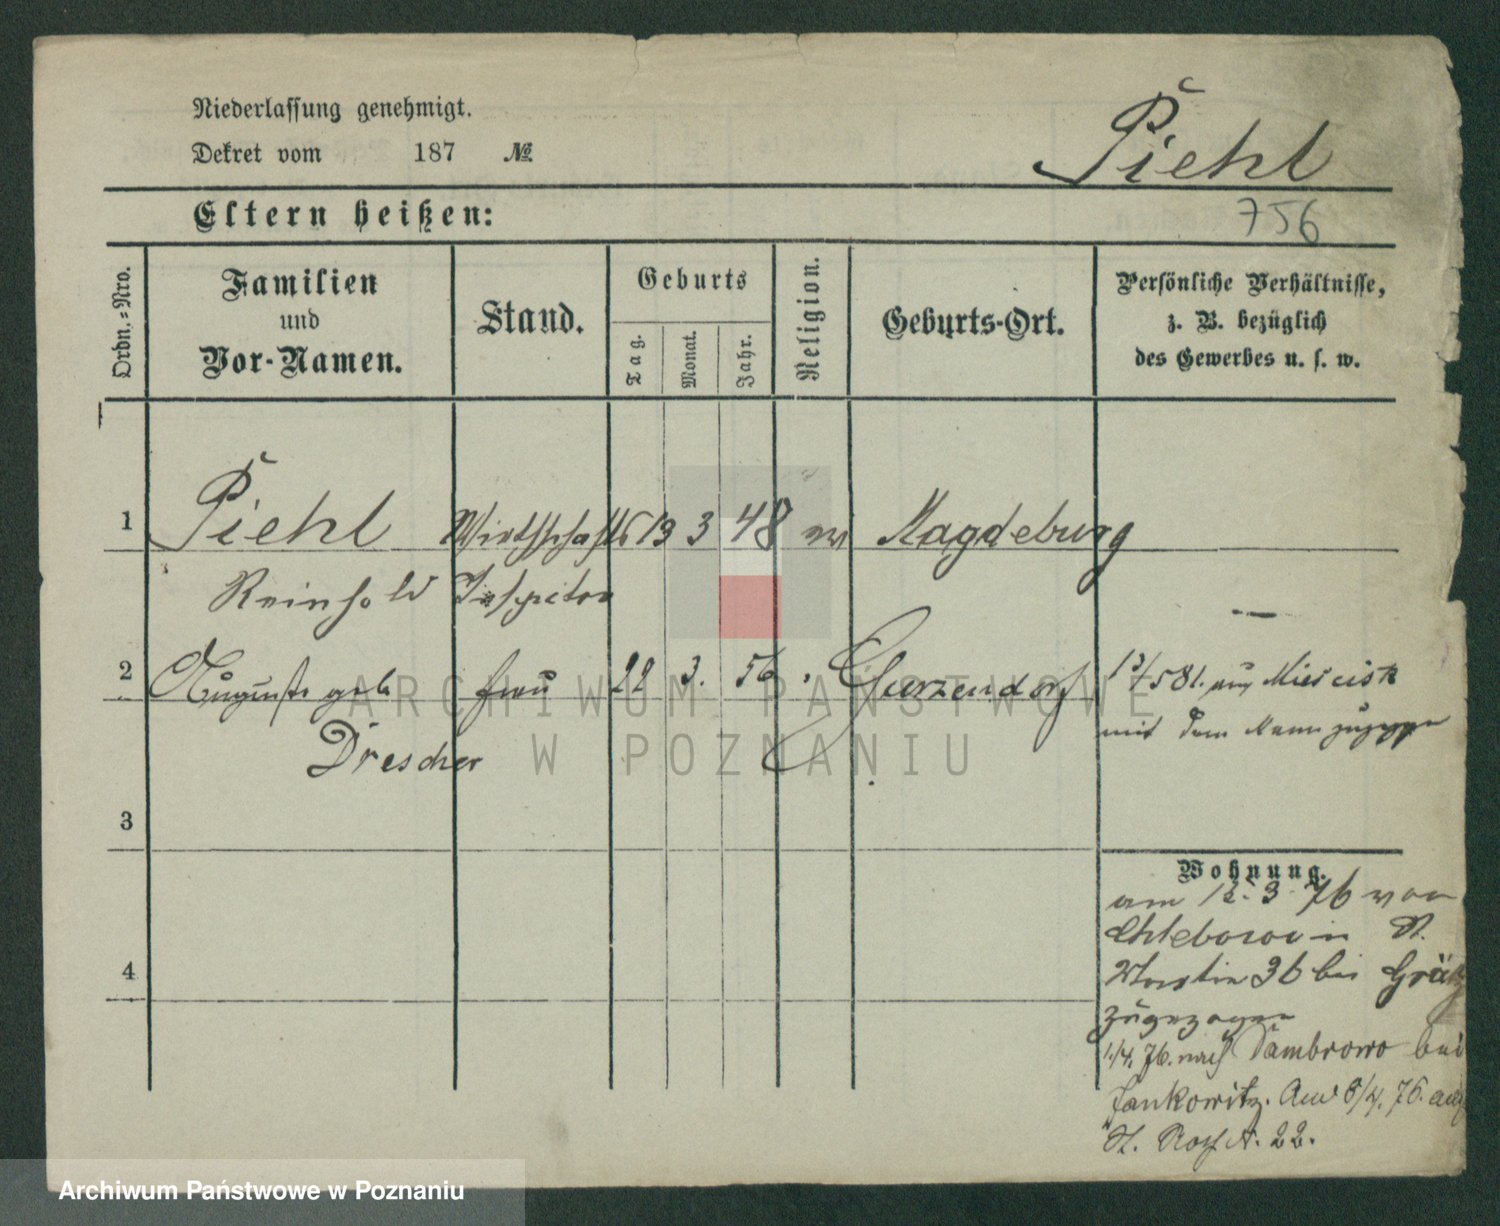 Niederlassung genehmigt.
Dekret vom 187 №
Piehl
Eltern heißen:
756
Ordn.=Nro.
Familien
und
Vor-Namen.
Stand.
Geburts
Tag.
Monat.
Jahr.
Religion.
Geburts-Ort.
Persönliche Verhältnisse,
z. B. bezüglich
des Gewerbes u. s. w.
1 Piehl Wirthschafts 19 3 48 ev Magdeburg
Reinhold Inspector
2 Auguste geb. Frau 22 3. 56 Gurzendorf
Drescher
581. aus Miescisk
mit dem Mann
3
Wohnung.
am 12. 3. 76 von
Chlebowo in St.
Martin 36 bei Grätz
zugezogen
4
1./4. 76. nach Dambrowo bei
Jankowitz. Am 8/4. 76. aus
St. 22.
ARCHIWUM PAŃSTWOWE
W POZNANIU
Archiwum Państwowe w Poznaniu